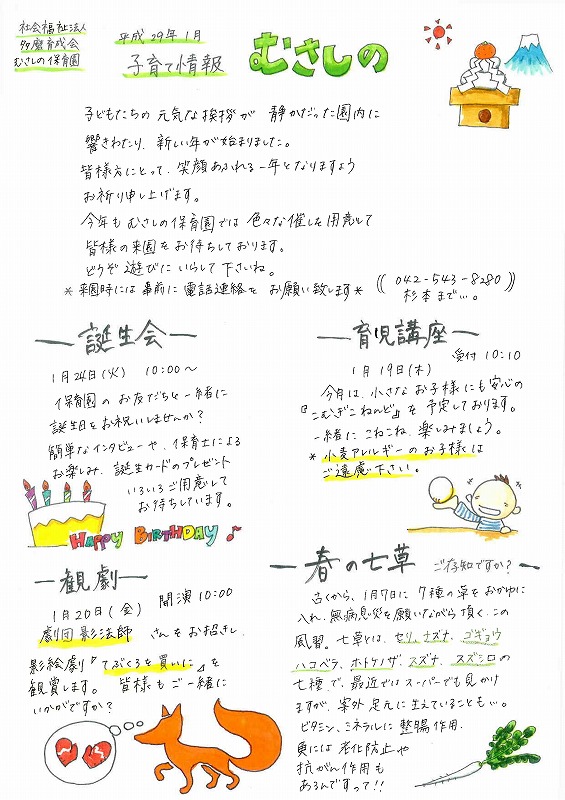 社会福祉法人
多磨育成会
むさしの保育園
平成29年1月
子育て情報
むさしの
子どもたちの 元気な挨拶が 静かだった園内に
響きわたり、新しい年が始まりました。
皆様方にとって、笑顔あふれる一年となりますよう
お祈り申し上げます。
今年も むさしの保育園では 色々な催しを用意して
皆様の来園を お待ちしております。
どうぞ 遊びに いらして下さいね。
*来園時には 事前に 電話連絡を お願い致します*
((042-543-8280))
杉本まで…。
誕生会
1月24日(火) 10:00〜
保育園の お友だちと一緒に
誕生日をお祝いしませんか?
簡単なインタビューや、保育士による
お楽しみ、誕生カードのプレゼント
いろいろご用意して
お待ちしています。
HAPPY BIRTHDAY♪
育児講座
受付 10:10
1月19日(木)
今月は、小さなお子様にも安心の
『こむぎこねんど』を予定しております。
一緒に こねこね、楽しみましょう。
*小麦アレルギーのお子様は
ご遠慮下さい。
観劇
1月20日(金) 開演10:00
劇団影法師 さんをお招きし、
影絵劇『てぶくろを買いに』を
観賞します。 皆様もご一緒に
いかがですか?
春の七草
ご存知ですか?
古くから、1月7日に 7種の草をおかゆに
入れ、無病息災を願いながら頂く、この
風習。七草とは、セリ、ナズナ、ゴギョウ
ハコベラ、ホトケノザ、スズナ、スズシロの
七種で、最近では スーパーでも見かけ
ますが、案外 足元に生えていることも…。
ビタミン、ミネラルに 整腸作用、
更には 老化防止や
抗がん作用も
あるんですって!!